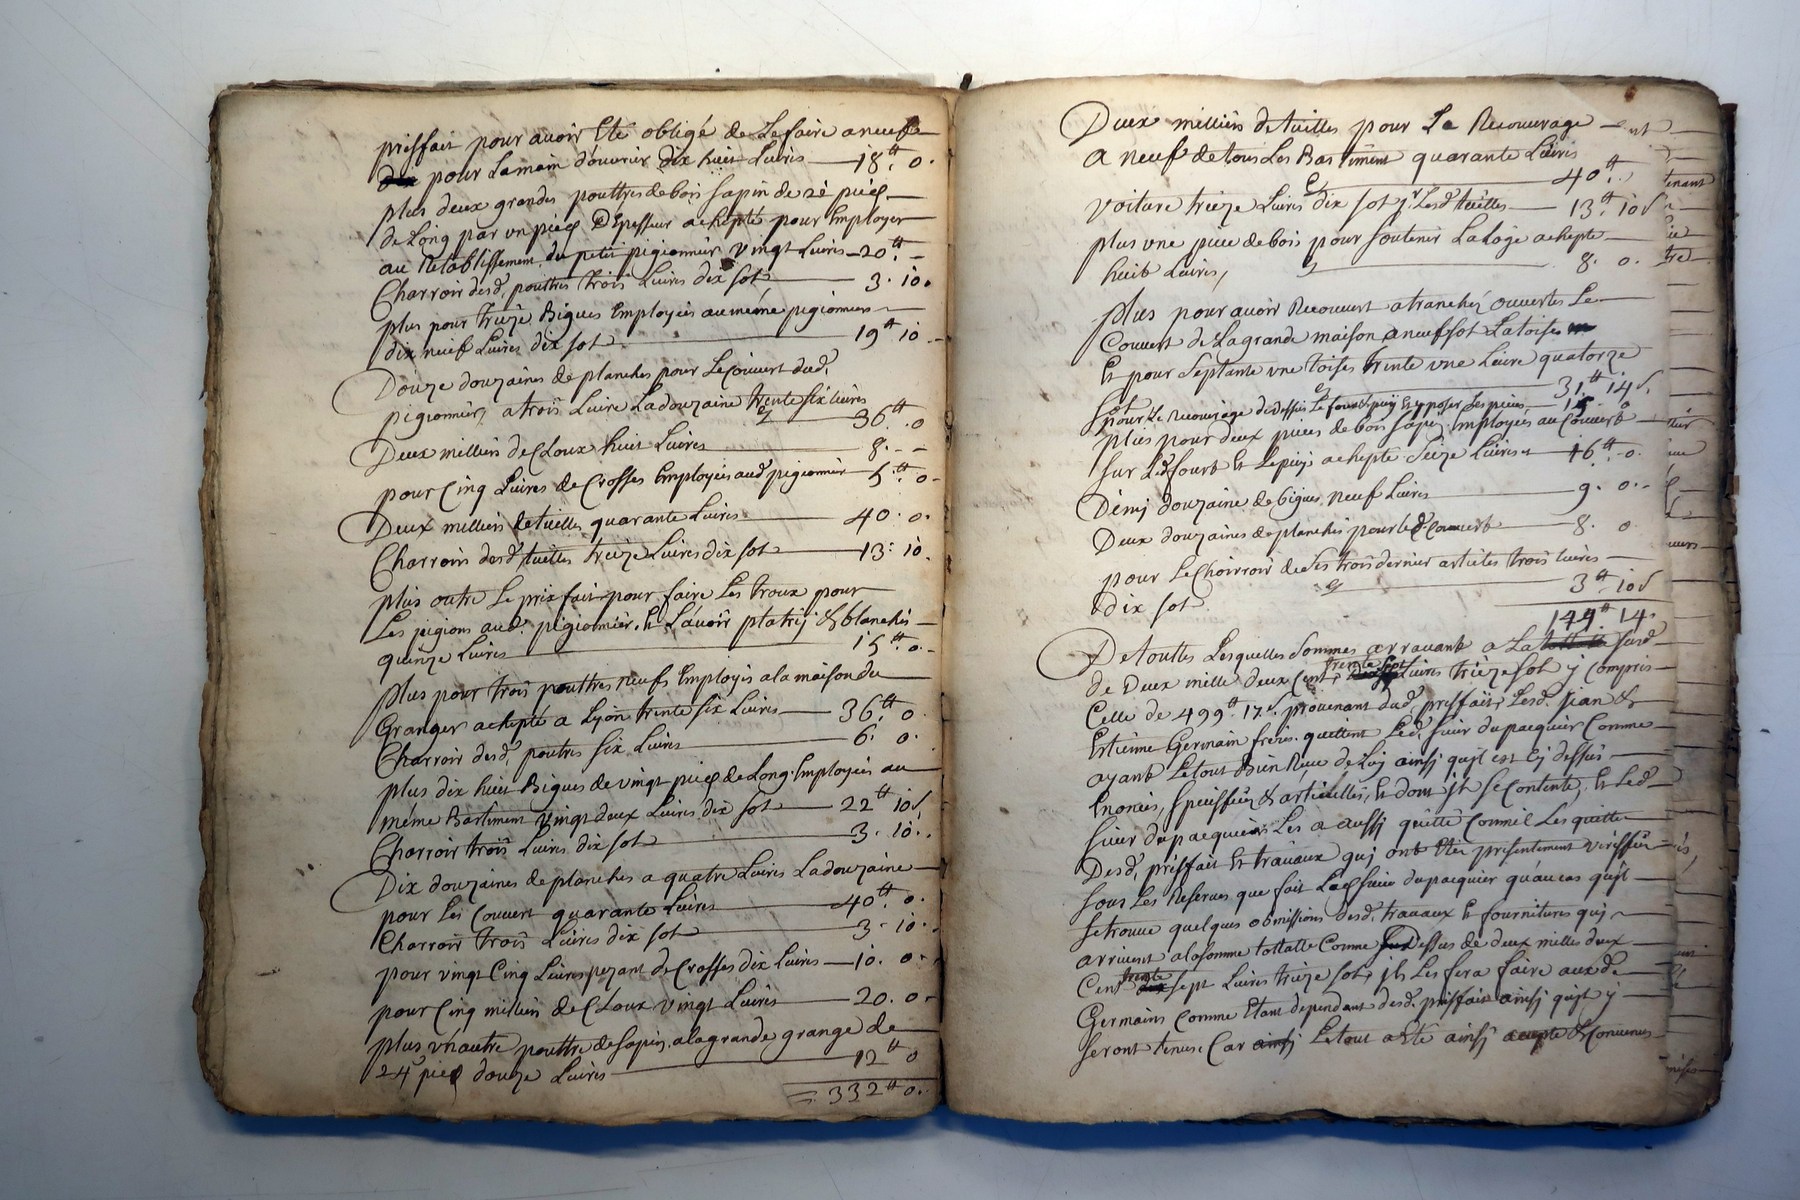 prisfait pour avoir Eté obligé de Le faire aneufs
pour Lamain d'ouvrier dix huit Livres — 18ᵗᵗ 0.
plus deux grandes pouttres de bois sapin de 22 pieds
de Long par un pied D'Epesseur achepté pour Employer
au Retablissement du petit pigionnier vingt Livres — 20ᵗᵗ —
Charroir desd. pouttres trois Livres dix sot — 3. 10.
plus pour treize Bigues Employées au méme pigionnier
dix neuf Livres dix sot — 19ᵗᵗ 10.
Douze douzaines de planches pour Le Couvert dud.
pigionnier, a trois Livre La douzaine trente six livres
36ᵗᵗ 0
Deux milliers de Cloux huit Livres — 8. —
pour Cinq Livres de Crosses Employées aud pigionnier — 5ᵗᵗ 0
Deux milliers de tuilles quarante Livres — 40. 0.
Charroir desd. tuilles treize Livres dix sot — 13. 10.
plus outre Le prix fait pour faire Les troux pour
Les pigions aud. pigionnier. Et L'avoir platrij & blanchis
quinze Livres — 15ᵗᵗ 0.
plus pour trois pouttres neufs Employés a la maison du
Granger achepté a Lyon trente six Livres — 36ᵗᵗ 0.
Charroir desd. poutres six Livres — 6. 0.
plus dix huit Bigues de vingt pieds de Long Employées au
méme Bastiment vingt deux Livres dix sot — 22ᵗᵗ 10s
Charroir trois Livres dix sot — 3. 10.
Dix douzaines de planches a quatre Livres La douzaine
pour Les Couvert quarante Livres — 40ᵗᵗ 0.
Charroir trois Livres dix sot — 3. 10.
pour vingt Cinq Livres pezant de Crosses dix Livres — 10. 0
pour Cinq milliers de Cloux vingt Livres — 20. 0
plus un autre pouttre de sapin a la grande grange de
24 pied douze Livres — 12ᵗᵗ 0
332ᵗᵗ 0.
Deux milliers de tuilles pour Le Recouvrage
a neuf de tous Les Bastiment quarante Livres
40ᵗᵗ
voiture treize Livres dix sot pr Lesd tuilles — 13ᵗᵗ 10s
plus une piece de bois pour soutenir La Loge achepte
huit Livres, — 8. 0.
plus pour avoir Recouvert a tranchés ouvertes Le
Couvert de La grande maison a neuf sot La toises
Et pour septante une toises trente une Livre quatorze
sot — 31ᵗᵗ 14s.
pour Le recouvrage dedessus Le four & puij Et y poser Les pieces — 15. 0
plus pour deux pieces de bois sapin Employées au Couvert
sur Led four Et Le puij achepte seize Livres — 16ᵗᵗ 0.
Demj douzaine de bigues neuf Livres — 9. 0.
Deux douzaines de planches pour led. Couvert — 8. 0.
pour Le Choirroir de Les trois dernier articles trois livres
dix sot — 3ᵗᵗ 10s
144ᵗᵗ 14.
De touttes Lesquelles sommes arrivant a La susd
de Deux mille deux Cent trente sept Livres treize sot y Compris
Celle de 499ᵗᵗ 17s. provenant dud. prisfait, Lesd. Jean &
Estienne Germain freres quittent Led. sieur dupacquier Comme
ayant Le tout Bien Reçu de Luj ainsj qu'jl est Cj dessus
Enoncés, speciffiés & articullés, Et dont jls se Contente, Et Led
sieur dupacquier Les a aussj quitte Comm'il Les quitte
Desd. prisfait Et travaux quj ont Etés presentement veriffiés
sous Les Reserves que fait Led sieur dupacquier qu'au cas qu'jl
se trouve quelques obmissions desd. travaux Et fournitures quj
arrivent a la somme tottalle Comme Dessus de deux milles deux
Cent trente sept Livres treize sot, jls Les fera faire aux de
Germains Comme Etant dependant desd. prisfait ainsj qu'jl y
seront tenus, Car Le tout a Eté ainsj accepte & Convenus